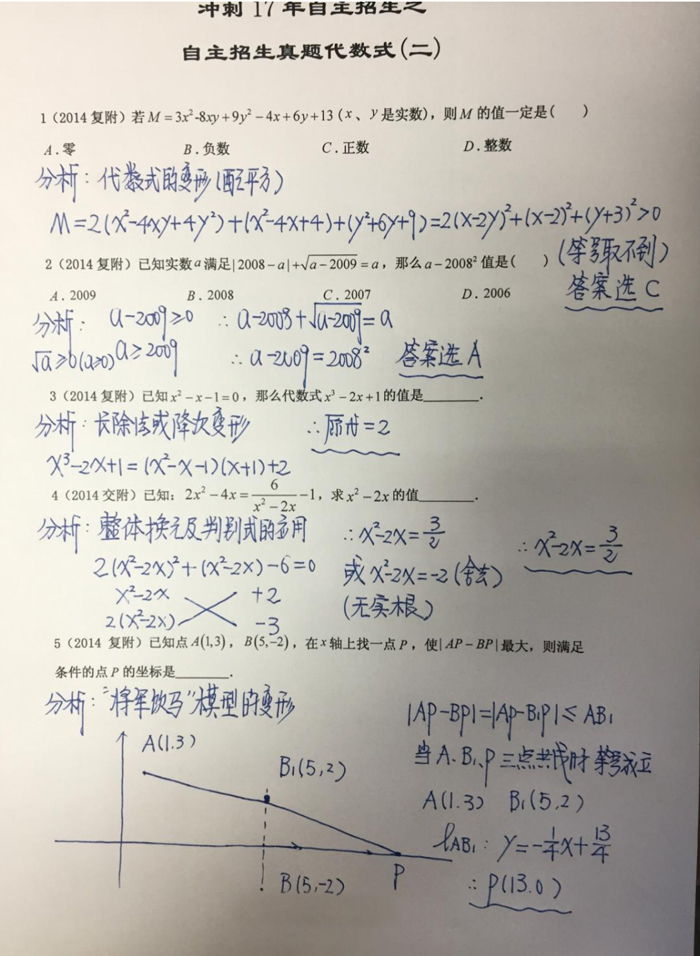 冲刺 17 年自主招生之
自主招生真题代数式(二)
1（2014 复附）若 M = 3x²-8xy+9y²-4x+6y+13 (x、y 是实数)，则 M 的值一定是(    )
A.零  B.负数  C.正数  D.整数
分析：代数式的变形(配平方)
M=2(x²-4xy+4y²)+(x²-4x+4)+(y²+6y+9)=2(x-2y)²+(x-2)²+(y+3)²>0
(等号取不到)
2（2014 复附）已知实数 a 满足 |2008-a|+√(a-2009)=a，那么 a-2008² 值是(    )
A.2009  B.2008  C.2007  D.2006
答案选 C
分析： a-2009≥0 ∴a-2008+√(a-2009)=a
√a≥0(a≥0) a≥2009 ∴a-2009=2008² 答案选 A
3（2014 复附）已知 x²-x-1=0，那么代数式 x³-2x+1 的值是______.
分析：长除法或降次变形 ∴原式=2
x³-2x+1=(x²-x-1)(x+1)+2
4（2014 交附）已知：2x²-4x=6/(x²-2x)-1，求 x²-2x 的值______.
分析：整体换元及判别式的应用 ∴x²-2x=3/2
2(x²-2x)²+(x²-2x)-6=0 或 x²-2x=-2(舍去) ∴x²-2x=3/2
x²-2x +2 (无实根)
2(x²-2x) -3
5（2014 复附）已知点 A(1,3)，B(5,-2)，在 x 轴上找一点 P，使|AP-BP|最大，则满足
条件的点 P 的坐标是______.
分析："将军饮马"模型的变形
|AP-BP|=|AP-B₁P|≤AB₁
A(1.3)
B₁(5,2)
当 A、B₁、P 三点共线时 等号成立
A(1.3) B₁(5,2)
l_AB₁: y=-1/4x+13/4
P
B(5,-2)
∴P(13.0)